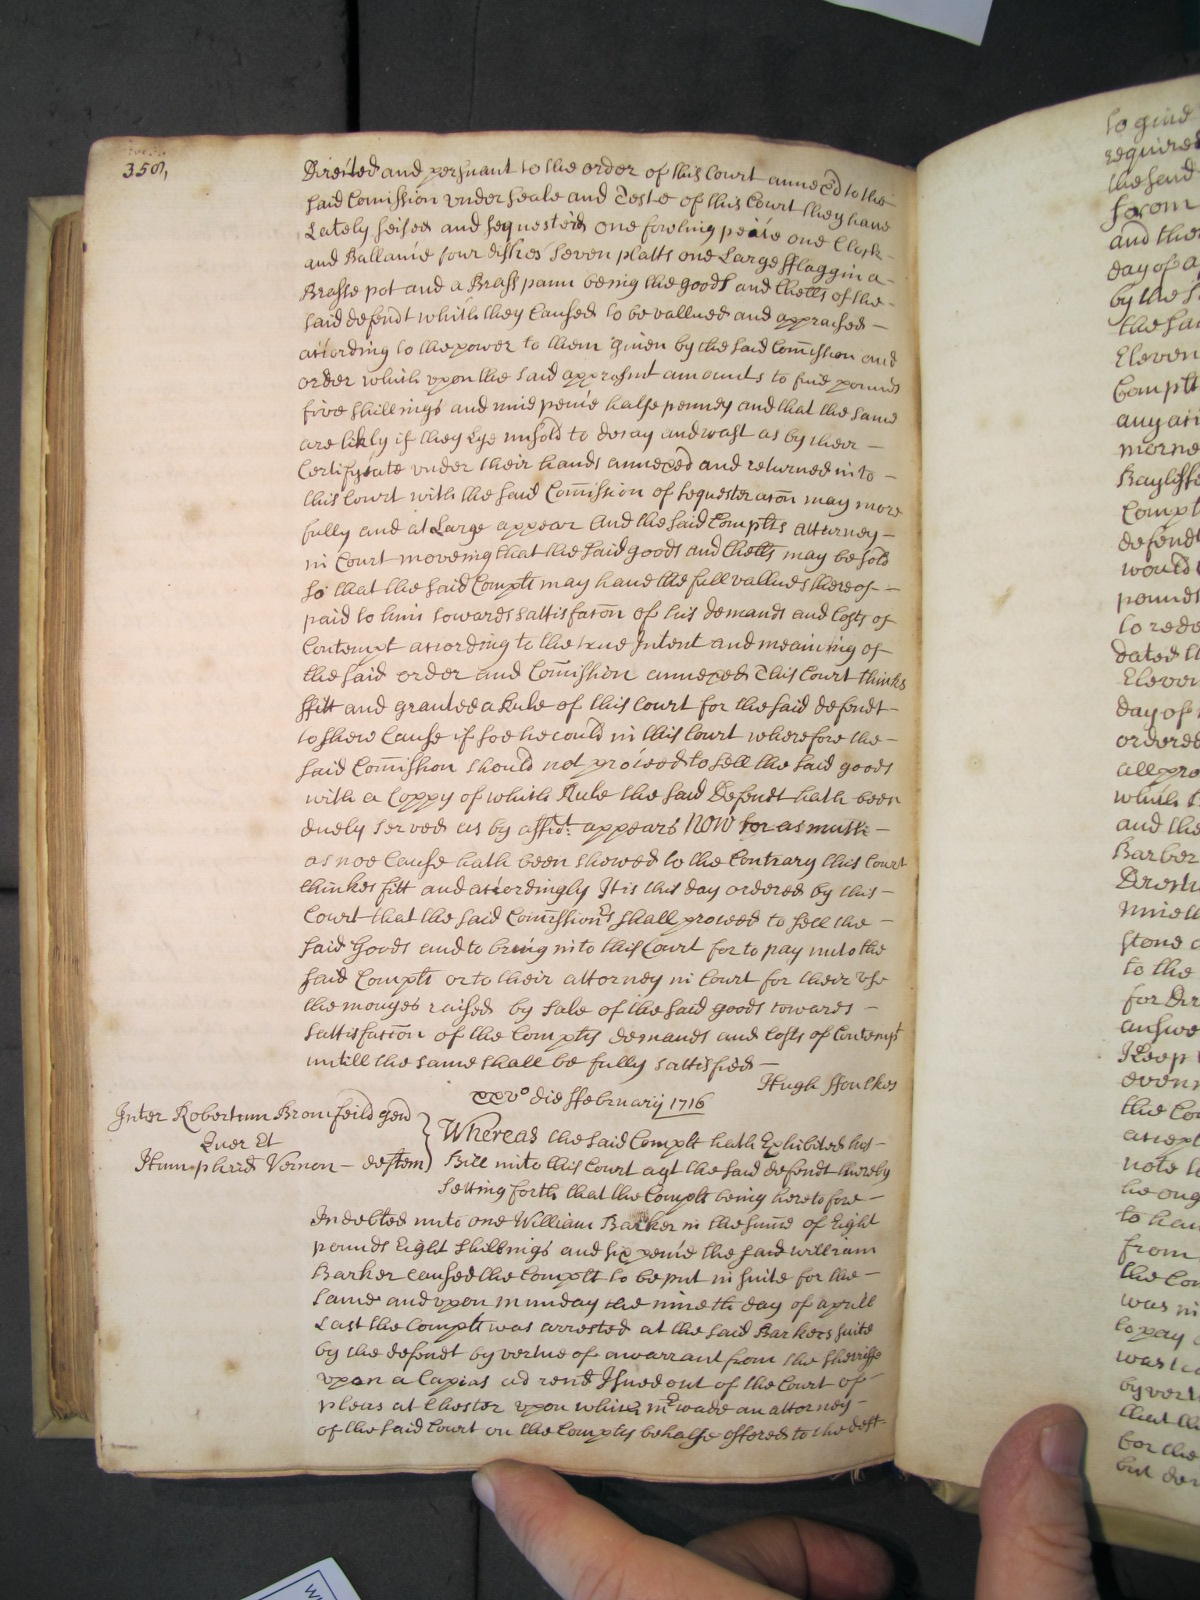 358,
Directed and persuant to the order of this Court annexed to the
said Comission under seale and Teste of this Court they have
Lately seised and sequestered one fowling peice one Clock
and Ballance four dishes seven platts one Large fflaggin a
Brasse pot and a Brass pann being the goods and Chells of the
said defendt which they Caused to be vallued and appraised
according to the power to them given by the said Comission and
order which upon the said appresmt amounts to five pounds
five shillings and nine pence halfe penney and that the same
are likly if they Lye unsold to decay and wast as by their
Certifycate under their hands annexed and returned into
this Court with the said Comission of sequesteracon may more
fully and at Large appear And the said Complts atturney
in Court moveing that the said goods and Chells may be sold
so that the said Complt may have the full vallues thereof
paid to him towards sattisfacon of his demands and Costs of
Contempt according to the true Intent and meaining of
the said order and Comission annexed This Court thinks
ffitt and granted a Rule of this Court for the said defendt
to shew Cause if soe he could in this Court wherefore the
said Comission should not proceed to sell the said goods
with a Coppy of which Rule the said Defendt hath been
duely served as by affidt: appears Now for as much
as noe Cause hath been shewed to the Contrary this Court
thinkes fitt and accordingly It is this day ordered by this
Court that the said Comissionrs shall proceed to sell the
said Goods and to bring into this Court for to pay unto the
said Complt or to their attorney in Court for their use
the monyes raised by sale of the said goods towards
sattisfacon of the Complts demands and Costs of Contempt
untill the same shall be fully sattisfied
Hugh ffoulkes
xxvo die ffebruarij 1716
Inter Robertum Bromfeild gen
Quer Et
Humphrid Vernon - defftem
Whereas the said Complt hath Exhibited his
Bill into this Court agt the said defendt thereby
setting forth that the Complt being heretofore
Indebted unto one William Barker in the sume of Eight
pounds Eight shillings and six pence the said william
Barker caused the Complt to be put in suite for the
same and upon munday the nineth day of aprill
Last the Complt was arrested at the said Barkers suite
by the defendt by vertue of a warrant from the sheriffe
upon a Capias ad rend Issued out of the Court of
pleas at Chester upon which mr wade an attorney
of the said Court on the Complts behalfe offered to the deft
to give
required
the said
and the
day of a
by the s
the sai
Eleven
Complt
any
morne
Bayliffe
Compl
defendt
would
pounds
to rede
dated th
Eleven
day of
ordered
all pro
which
and the
Barber
to the
for
answe
Keep
even
the Co
accept
note
he oug
to hav
from
the Com
was in
to pay
was
by ver
that th
for the
but